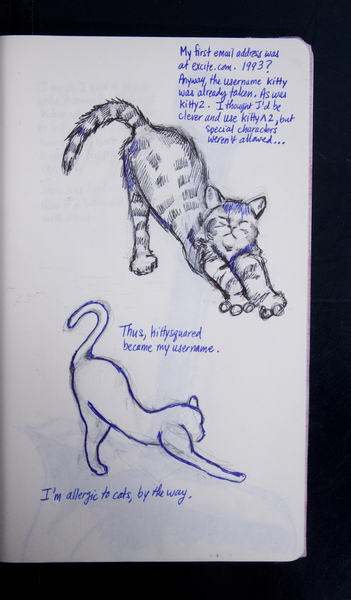 My first email address was
at excite.com. 1993?
Anyway, the username kitty
was already taken. As was
kitty2. I thought I'd be
clever and use kitty^2, but
special characters
weren't allowed...
Thus, kittysquared
became my username.
I'm allergic to cats, by the way.